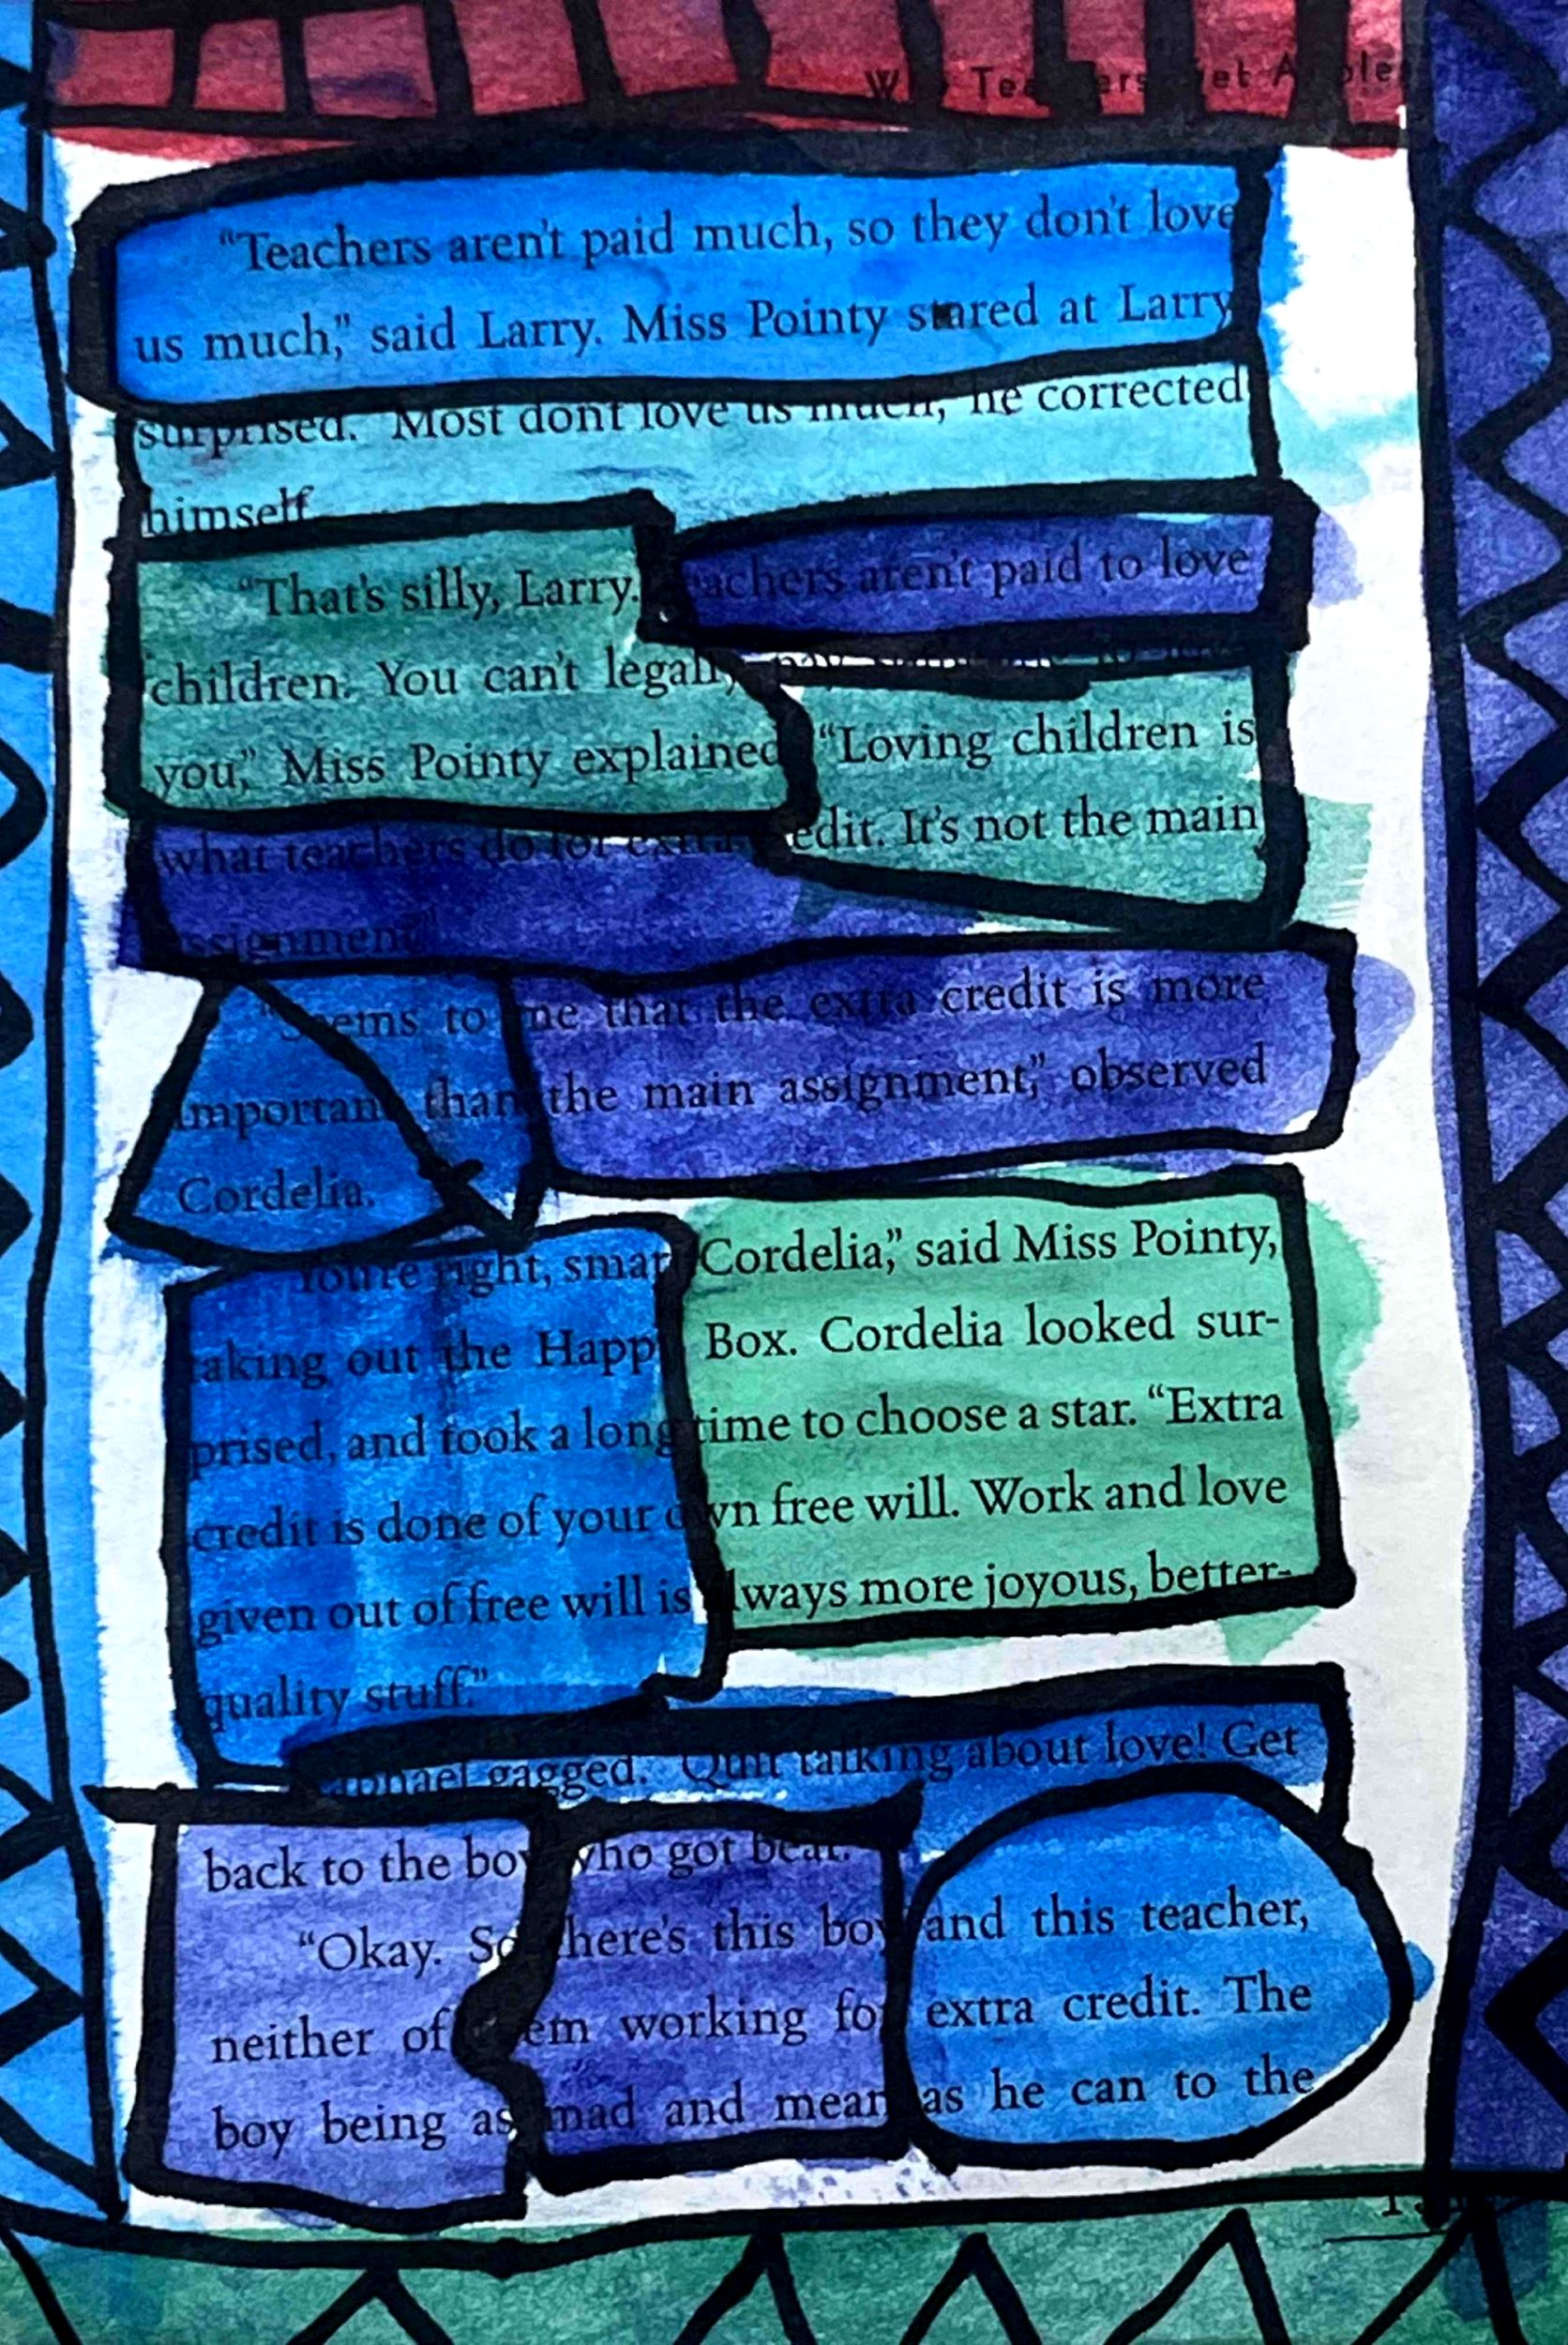 Why Teachers Get Apples
"Teachers aren't paid much, so they don't love
us much," said Larry. Miss Pointy stared at Larry
surprised. "Most don't love us much," he corrected
himself.
"That's silly, Larry. Teachers aren't paid to love
children. You can't legally pay someone to love
you," Miss Pointy explained. "Loving children is
what teachers do for extra credit. It's not the main
assignment."
"Seems to me that the extra credit is more
important than the main assignment," observed
Cordelia.
"You're right, smart Cordelia," said Miss Pointy,
taking out the Happy Box. Cordelia looked sur-
prised, and took a long time to choose a star. "Extra
credit is done of your own free will. Work and love
given out of free will is always more joyous, better-
quality stuff."
gagged. "Quit talking about love! Get
back to the boy who got beat."
"Okay. So there's this boy and this teacher,
neither of them working for extra credit. The
boy being as mad and mean as he can to the